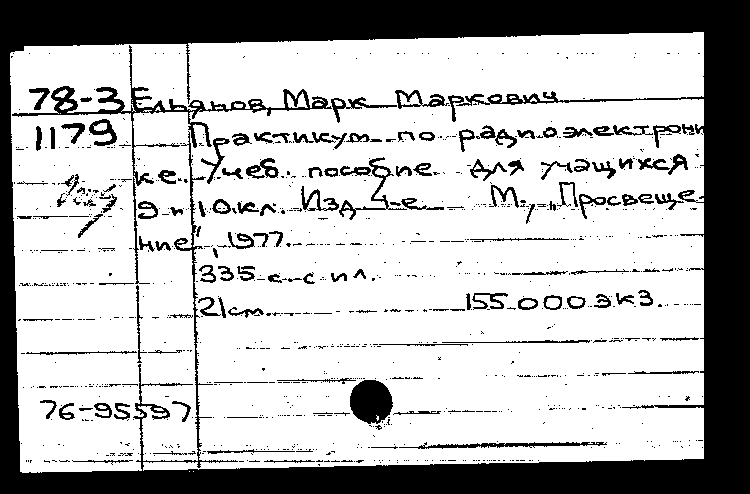 78-3 Ельянов, Марк Маркович
1179 Практикум по радиоэлектрони
ке. Учеб. пособие для учащихся
9 и 10 кл. Изд 4-е М., „Просвеще-
ние", 1977.
335 с. с ил.
21 см. 155.000 экз.
76-95597